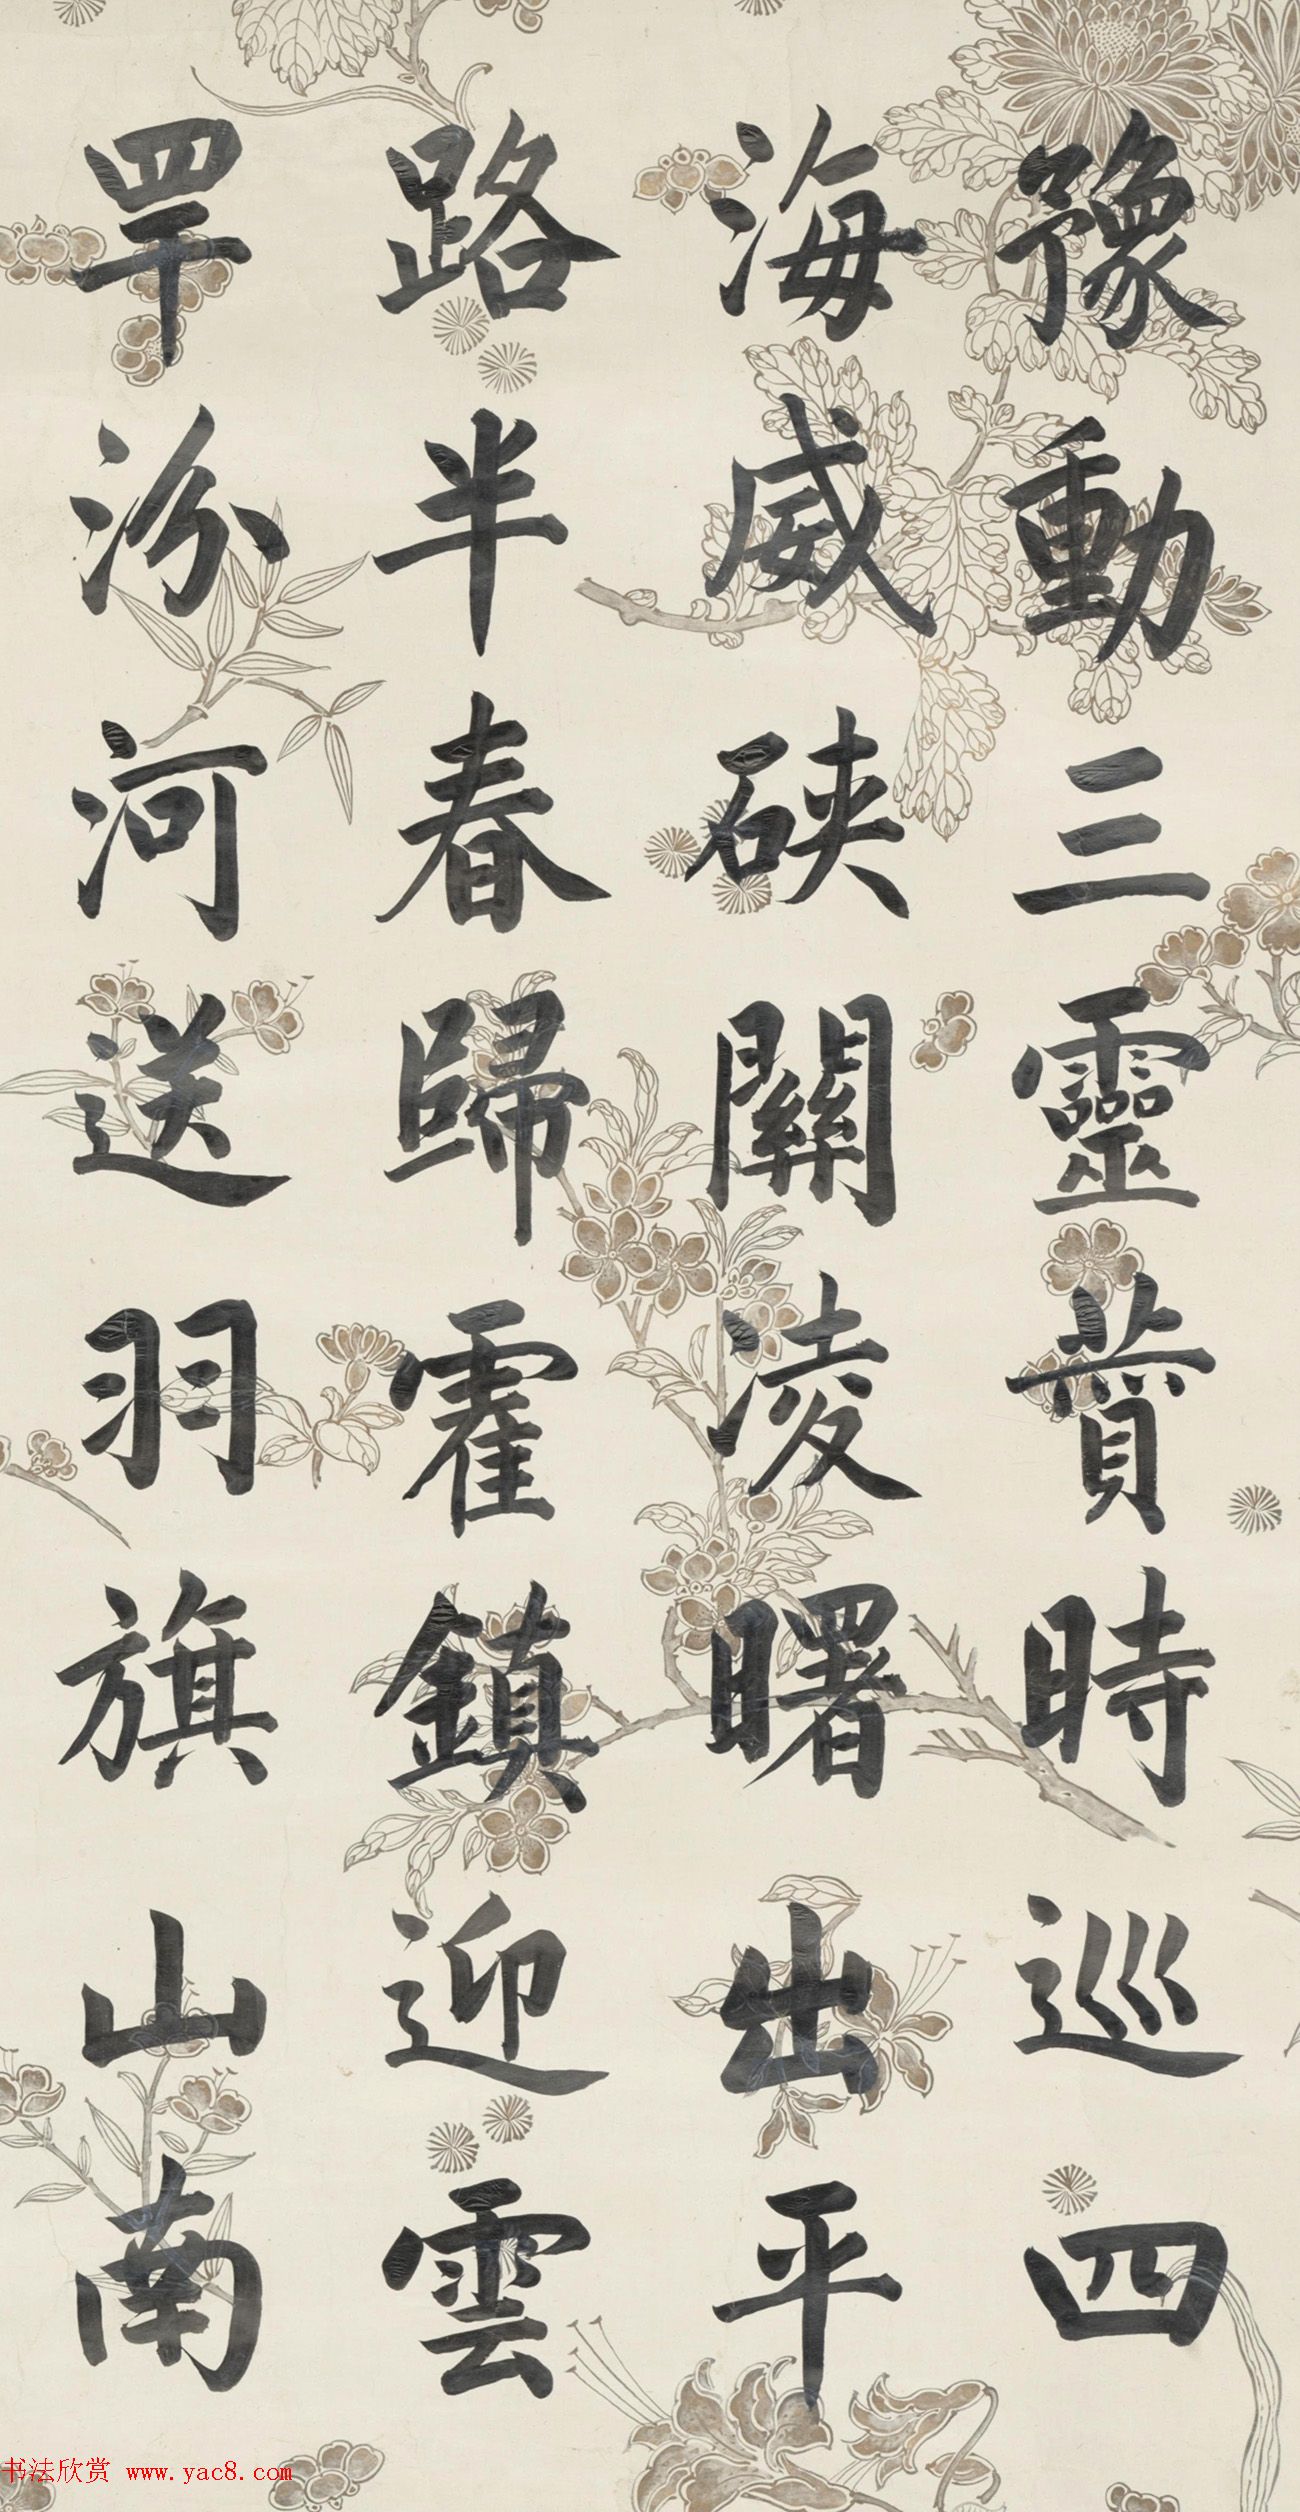 豫動三靈贊時巡四
海威硤關凌曙出平
路半春歸霍鎮迎雲
罕汾河送羽旗山南
书法欣赏 www.yac8.com